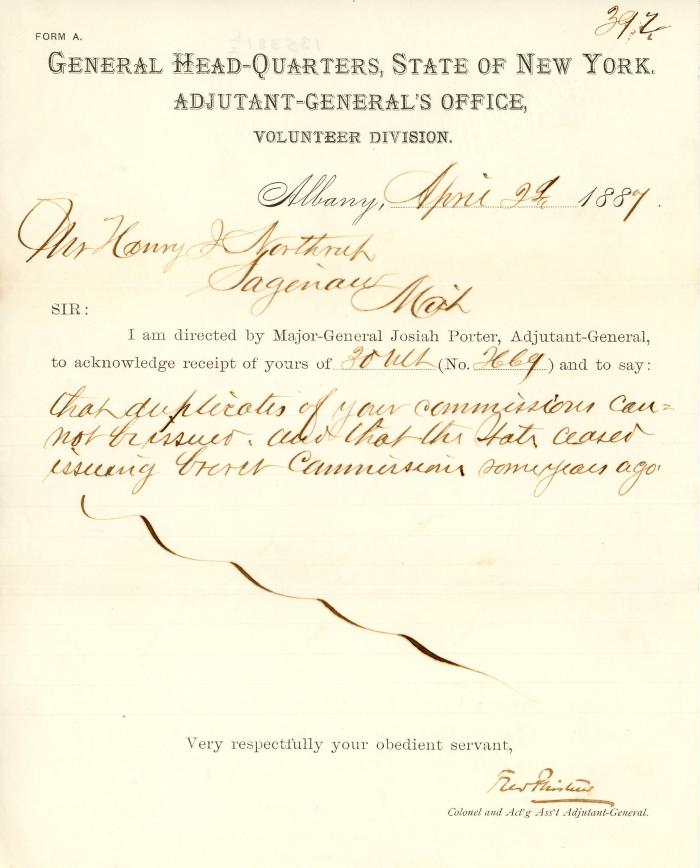 392
FORM A.
GENERAL HEAD-QUARTERS, STATE OF NEW YORK.
ADJUTANT-GENERAL'S OFFICE,
VOLUNTEER DIVISION.
Albany, April 29 1887.
Mr Henry J Northrup
Saginaw
Mich
SIR:
I am directed by Major-General Josiah Porter, Adjutant-General,
to acknowledge receipt of yours of 20 Ult (No. 2669) and to say:
that duplicates of your commissions can=
not be issued. and that the State ceased
issuing brevet Commissions some years ago.
Very respectfully your obedient servant,
Fred Phisterer
Colonel and Act'g Ass't Adjutant-General.